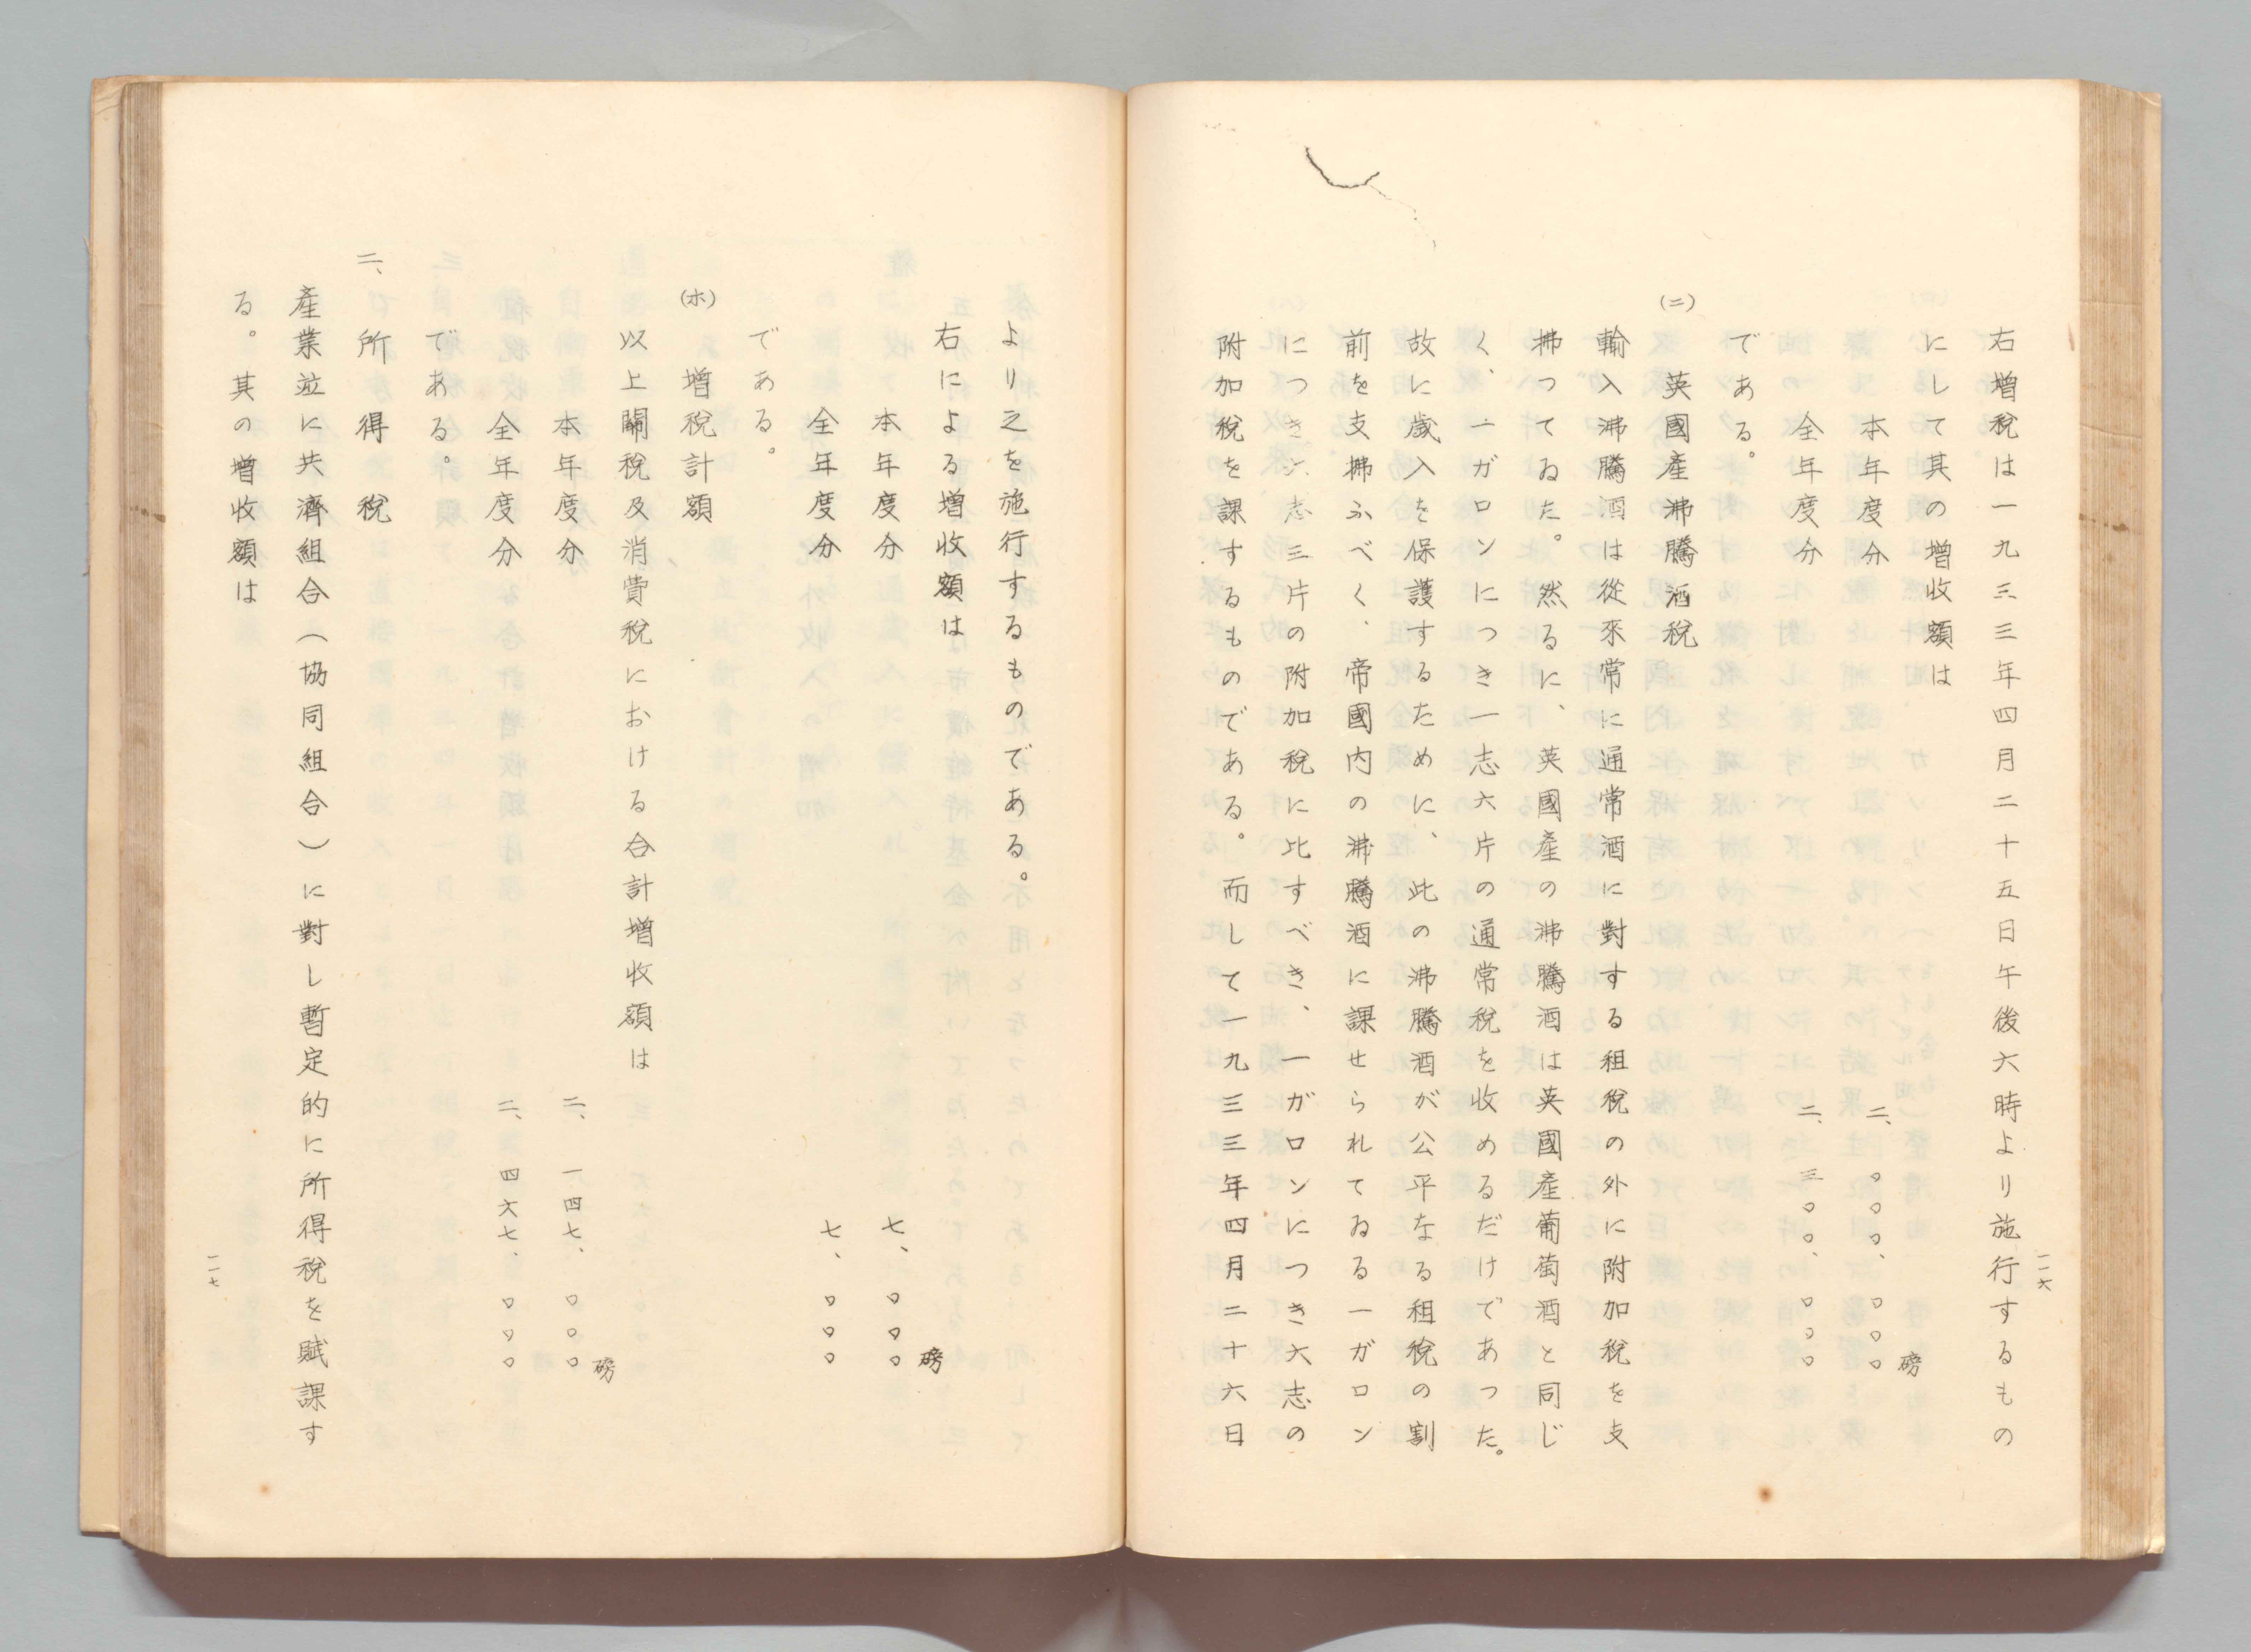 右增稅は一九三三年四月二十五日午後六時より施行するもの
にして其の增收額は
磅
本年度分 二、〇〇〇、〇〇〇
全年度分 二、三〇〇、〇〇〇
である。
(ニ) 英國產沸騰酒稅
輸入沸騰酒は從來常に通常酒に對する租稅の外に附加稅を支
拂つてゐた。然るに、英國產の沸騰酒は英國產葡萄酒と同じ
く、一ガロンにつき一志六片の通常稅を收めるだけであつた。
故に歲入を保護するために、此の沸騰酒が公平なる租稅の割
前を支拂ふべく、帝國內の沸騰酒に課せられてゐる一ガロン
につき六志三片の附加稅に比すべき、一ガロンにつき六志の
附加稅を課するものである。而して一九三三年四月二十六日
一一六
より之を施行するものである。
右による增收額は
磅
本年度分 七、〇〇〇
全年度分 七、〇〇〇
である。
(ホ) 增稅計額
以上關稅及消費稅における合計增收額は
磅
本年度分 二、一四七、〇〇〇
全年度分 二、四六七、〇〇〇
である。
二、所得稅
產業並に共濟組合(協同組合)に對し暫定的に所得稅を賦課す
る。其の增收額は
一一七